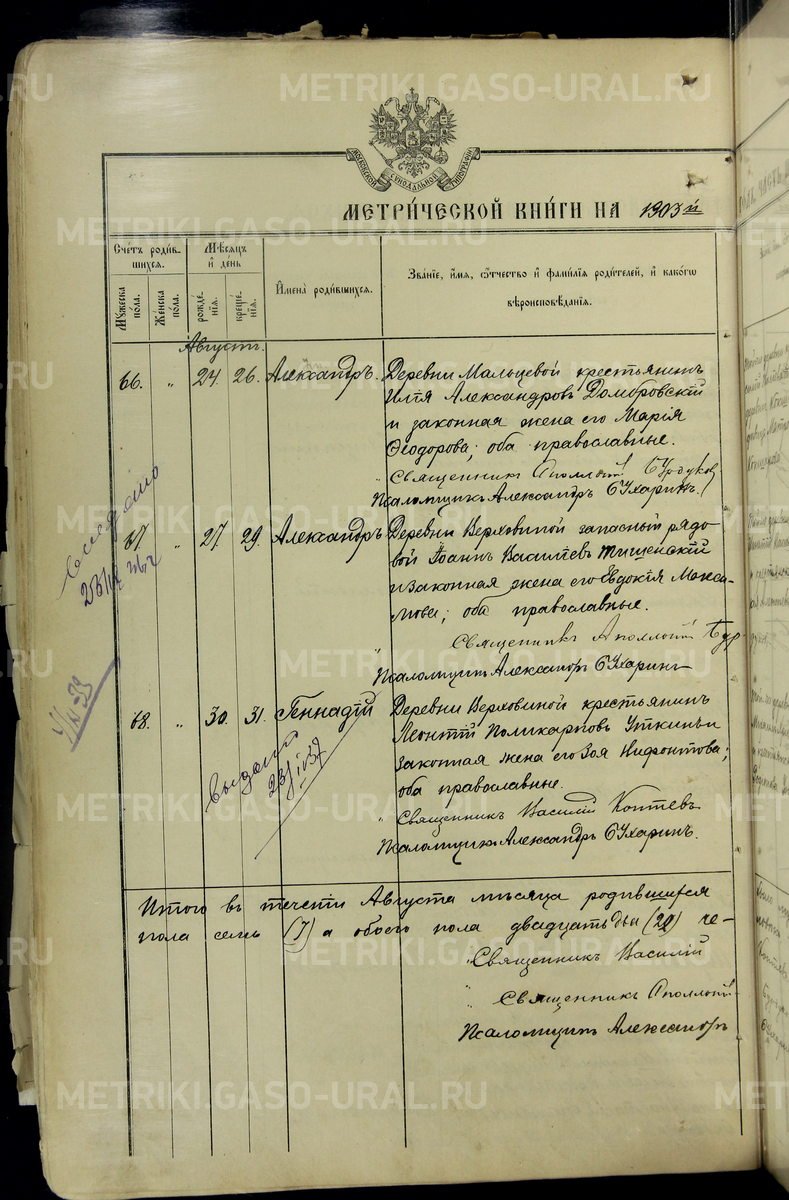 METRIKI.GASO-URAL.RU
МОСКОВСКОЙ СѴНОДАЛЬНОЙ ТИПОГРАФІИ
МЕТРИ́ЧЕСКОЙ КНИ́ГИ НА 1903 й
Счетъ роди́вшихся.
Мꙋжеска пола.
Же́нска пола.
Мѣсяцъ и҆ день
рожде́нїя.
креще́нїя.
И҆мена̀ роди́вшихся.
Зва́нїе, и҆́мя, ѻ҆́тчество и҆ фами́лїя роди́телей, и҆ како́гѡ
вѣроисповѣ́данїя.
Августъ.
66. " 24. 26. Александръ. Деревни Мальцевой крестьянинъ
Илія Александровъ Домбровскій
и законная жена его Марія
Ѳеодорова; оба православные.
Священникъ Аполлоній
Псаломщикъ Александръ Бухаринъ.
67. " 27. 29. Александръ Деревни Верховиной запасный рядо-
вой Іоаннъ Васильевъ Тишенскій
и законная жена его Евдокія Макси-
мова; оба православные.
Священникъ Аполлоній Бур-
Псаломщикъ Александръ Бухаринъ
68. " 30. 31. Геннадій Деревни Верховиной крестьянинъ
Леонтій Поликарповъ Уткинъ и
законная жена его Зоя Нифонтова;
оба православные.
Священникъ Василій Коптевъ
Псаломщикъ Александръ Бухаринъ.
выдано
23/I 37
Итого въ теченіи Августа мѣсяца родившихся
пола семь (7) а обоего пола двадцать два (22) че-
Священникъ Василій
Священникъ Аполлоній
Псаломщикъ Александръ